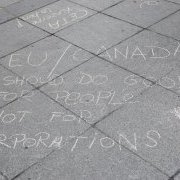 EU/CANADA
SHOULD DO GOOD
FOR PEOPLE
NOT FOR
CORPORATIONS